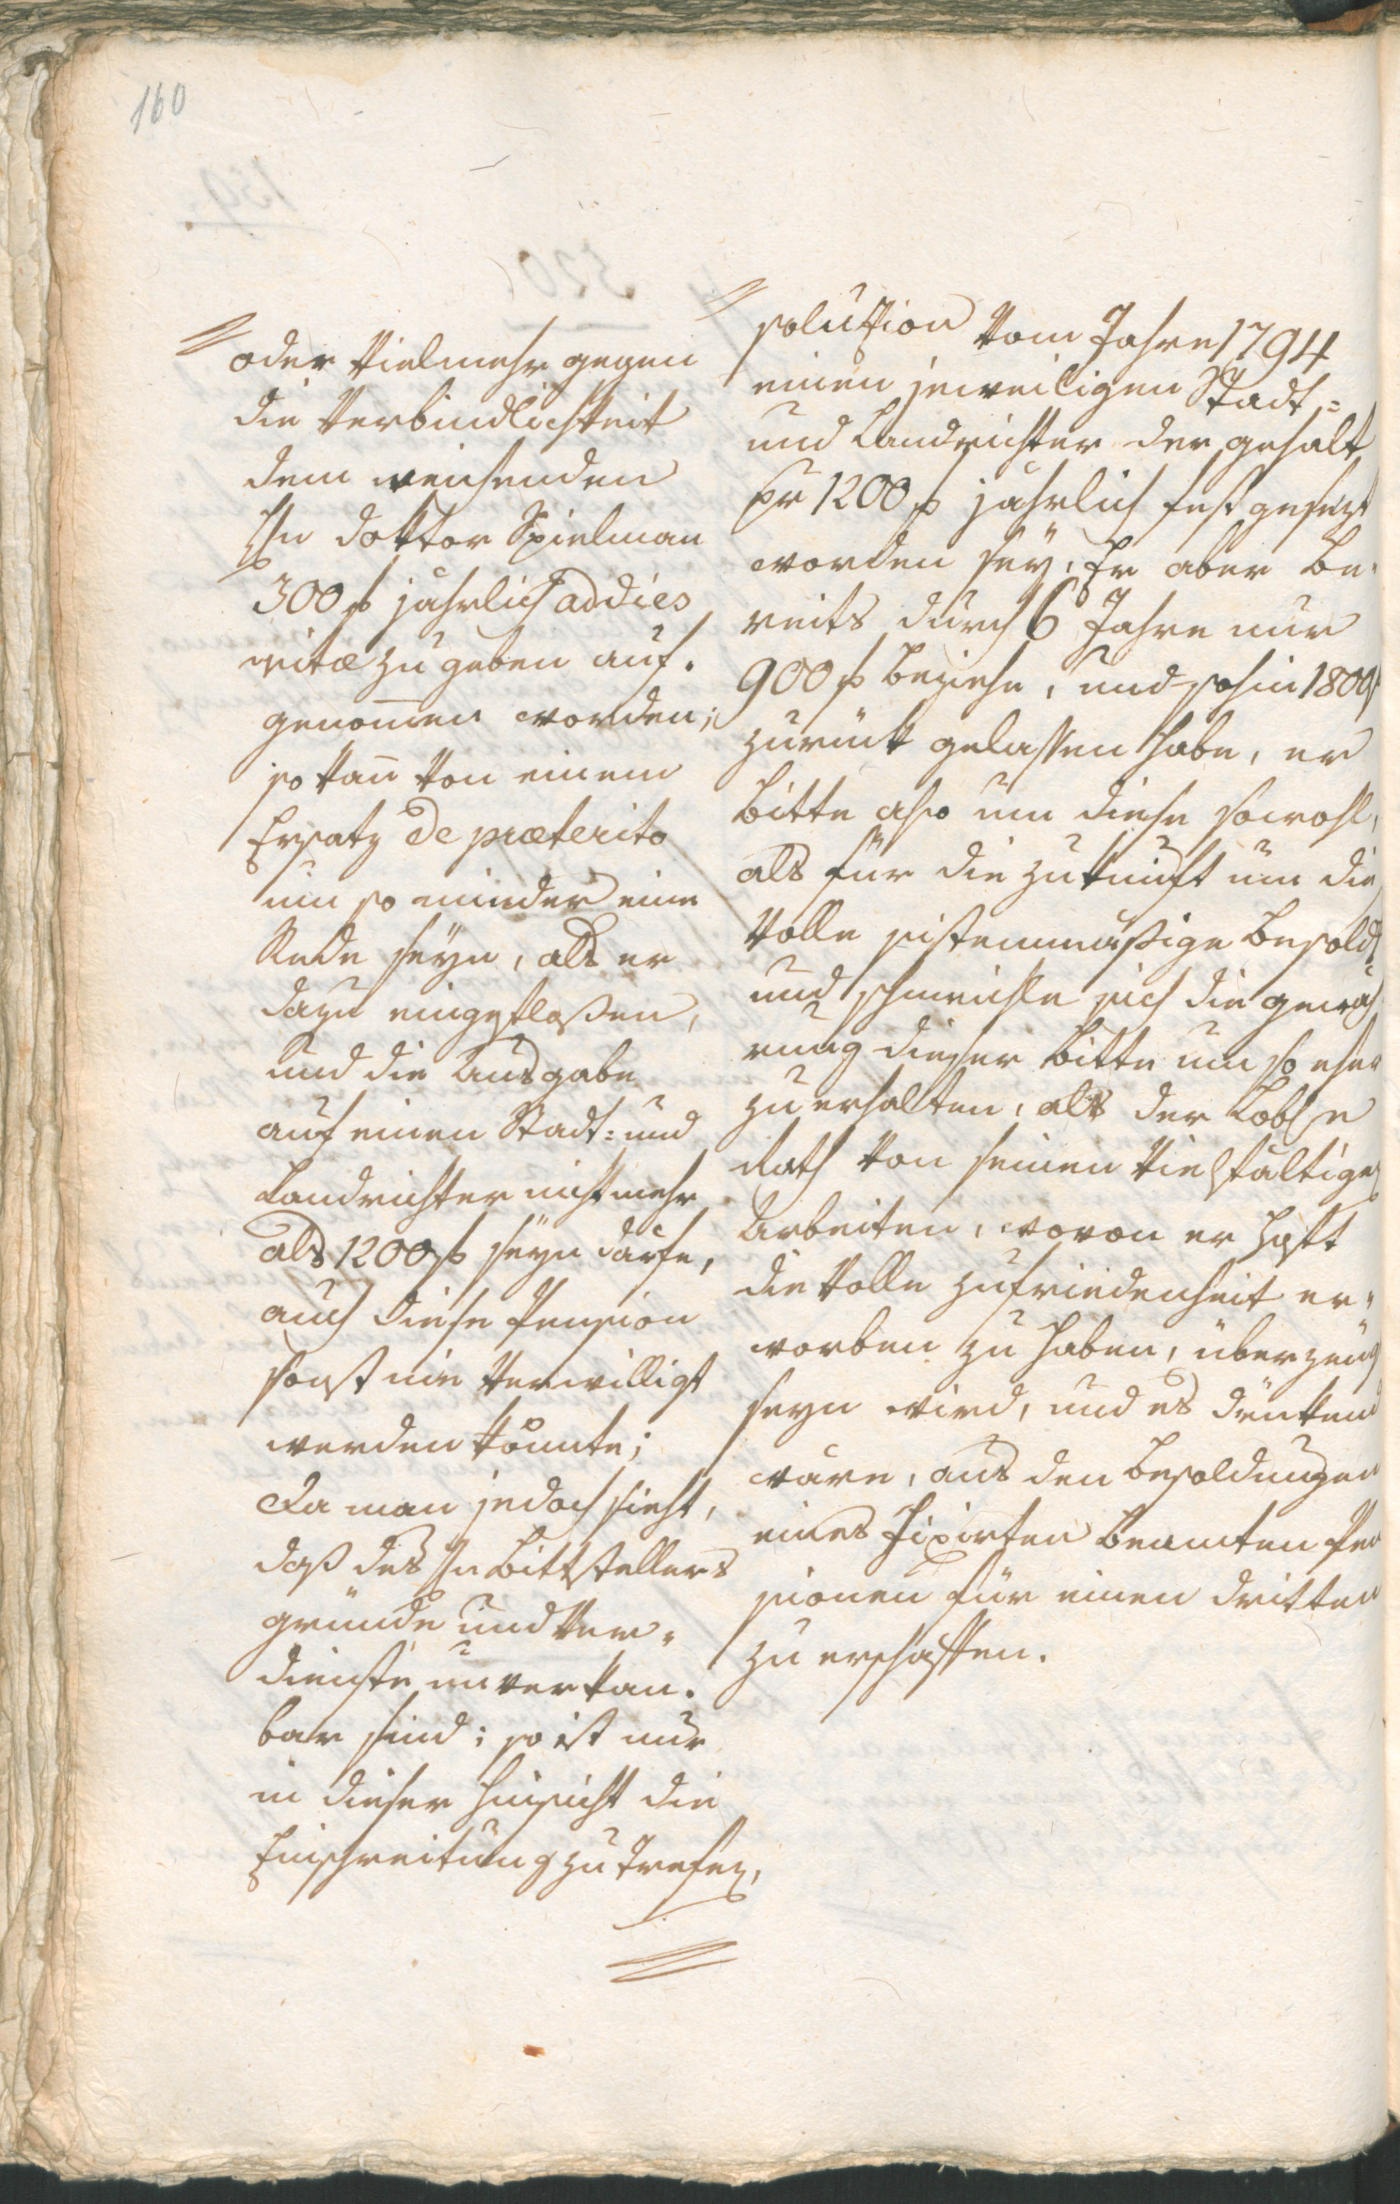 160
oder vielmehr gegen
die Verbindlichkeit
dem weichenden
Hn Doktor Spielman
300 f jährlich ad dies
vitæ zu geben auf-
genom̄en worden;
so kan̄ von einem
Ersatz de præterito
um so minder eine
Rede seyn, als er
dazu eingefloßen,
und die Ausgabe
auf einen Stadt- und
Landrichter nicht mehr
als 1200 f seyn darfe,
auch diese Pension
sonst nie verwilligt
werden könnte;
Da man jedoch sieht,
daß des Hn Bittstellers
gründe und Ver-
dienste unverkan-
bar sind; so ist nur
in dieser Hinsicht die
Einschreitung zu trefen,
solution vom Jahre 1794
einen jeweiligen Stadt-
und Landrichter der gehalt
pr 1200 f jährlich fest gesezt
worden sey; Er aber be-
reits durch 6 Jahre nur
900 f beziehe, und sohin 1800 f
zurück gelassen habe, er
bitte also um diese sowohl,
als für die Zukunft um die
volle sistemmäßige Besold
und schmeichle sich die gewäh
rung dieser bitte um so eher
zu erhalten, als der Löbl e
Rath von seinen vielfältigen
Arbeiten, wovon er hoft
die volle Zufriedenheit er-
worben zu haben, überzeug
seyn wird, und es drükend
wäre, aus den Besoldungen
eines fixirten Beamten Pen
sionen für einen dritten
zu erschaffen.